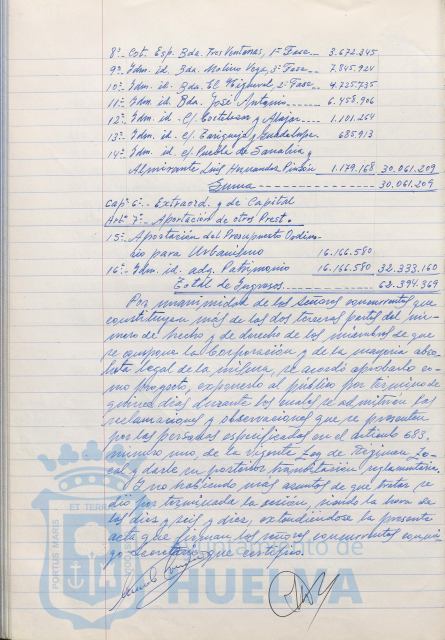 8º- Cot. Esp. Bda. Tres Ventanas, 1ª Fase.-- 3.672.245
9º- Idm. id. Bda. Molino Vega, 3ª Fase--- 7.845.924
10º- Idm. id. Bda. El Higueral, 2ª Fase-- 4.725.735
11º- Idm. id. Bda. José Antonio ----- 6.458.906
12º- Idm. id. C/ Cortelazor y Alájar--- 1.101.264
13º- Idm. id. C/ Encinasola y Guadalupe 685.913
14º- Idm. id. C/ Puebla de Sanabria y
Almirante Luis Hernández Pinzón 1.179.168 30.061.209
Suma ---------------- 30.061.209
Cap. 6º- Extraord. y de Capital
Artº 7º- Aportación de otros Prest.
15º- Aportación del Presupuesto Ordina-
rio para Urbanismo 16.166.580
16º- Idm. id. adq. Patrimonio 16.166.580 32.333.160
Total de Ingresos ------------- 62.394.369
Por unanimidad de los señores concurrentes que
constituyen más de las dos terceras partes del nú-
mero de hecho y de derecho de los miembros de que
se compone la Corporación y de la mayoría abso-
luta legal de la misma, se acordó aprobarlo co-
mo proyecto, exponerlo al público por término de
quince días, durante los cuales se admitirán las
reclamaciones y observaciones que se presenten
por las personas especificadas en el artículo 683,
número uno, de la vigente Ley de Régimen Lo-
cal y darle su posterior tramitación reglamentaria.
Y no habiendo más asuntos de que tratar, se
dió por terminada la sesión, siendo la hora de
las diez y seis y diez, extendiéndose la presente
acta que firman los señores concurrentes conmi-
go Secretario, que certifico.
PORTUS MARIS
ET TERRAE
Ayuntamiento de
HUELVA